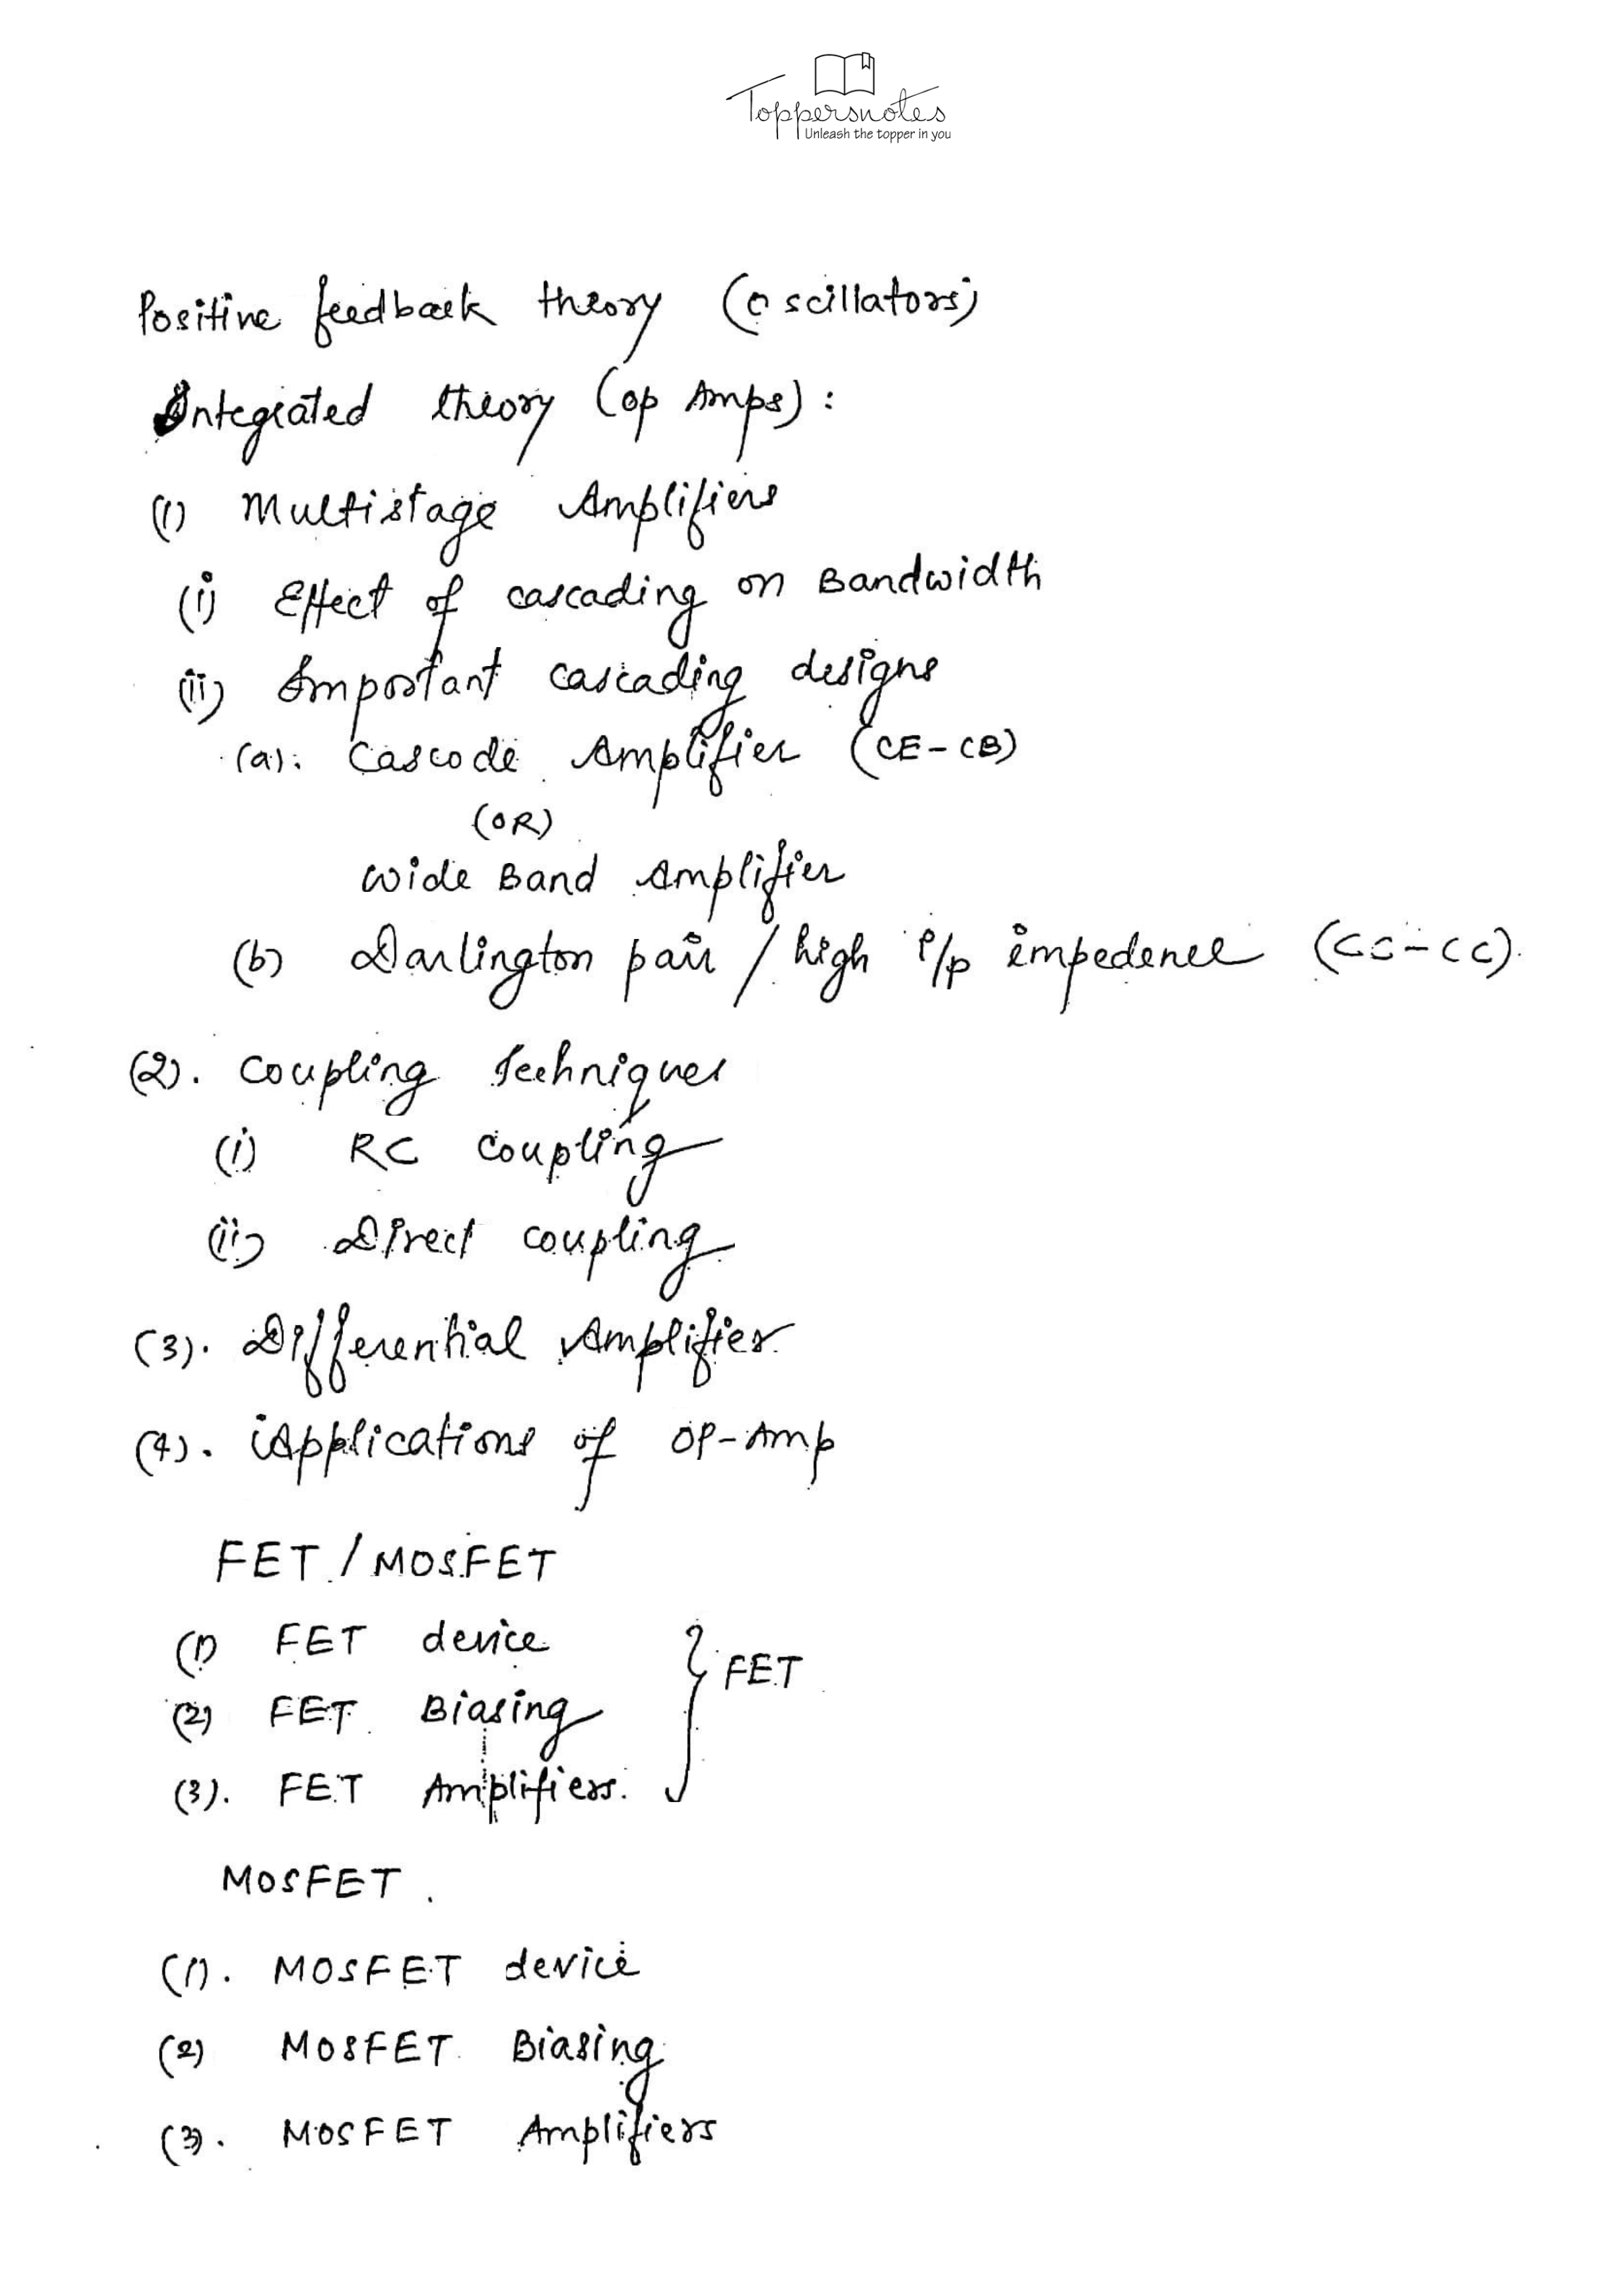 Toppersnotes
Unleash the topper in you
Positive feedback theory (oscillators)
Integrated theory (op Amps) :
(1) Multistage Amplifiers
(i) Effect of cascading on Bandwidth
(ii) Important cascading designs
(a). Cascode Amplifier (CE-CB)
(OR)
Wide Band Amplifier
(b) Darlington pair / high i/p impedence (CC-CC).
(2). Coupling Techniques
(i) RC Coupling
(ii) Direct coupling
(3). Differential Amplifier.
(4). Applications of OP-Amp
FET / MOSFET
(1) FET device
(2) FET Biasing
(3). FET Amplifiers.
} FET
MOSFET.
(1). MOSFET device
(2) MOSFET Biasing
(3). MOSFET Amplifiers